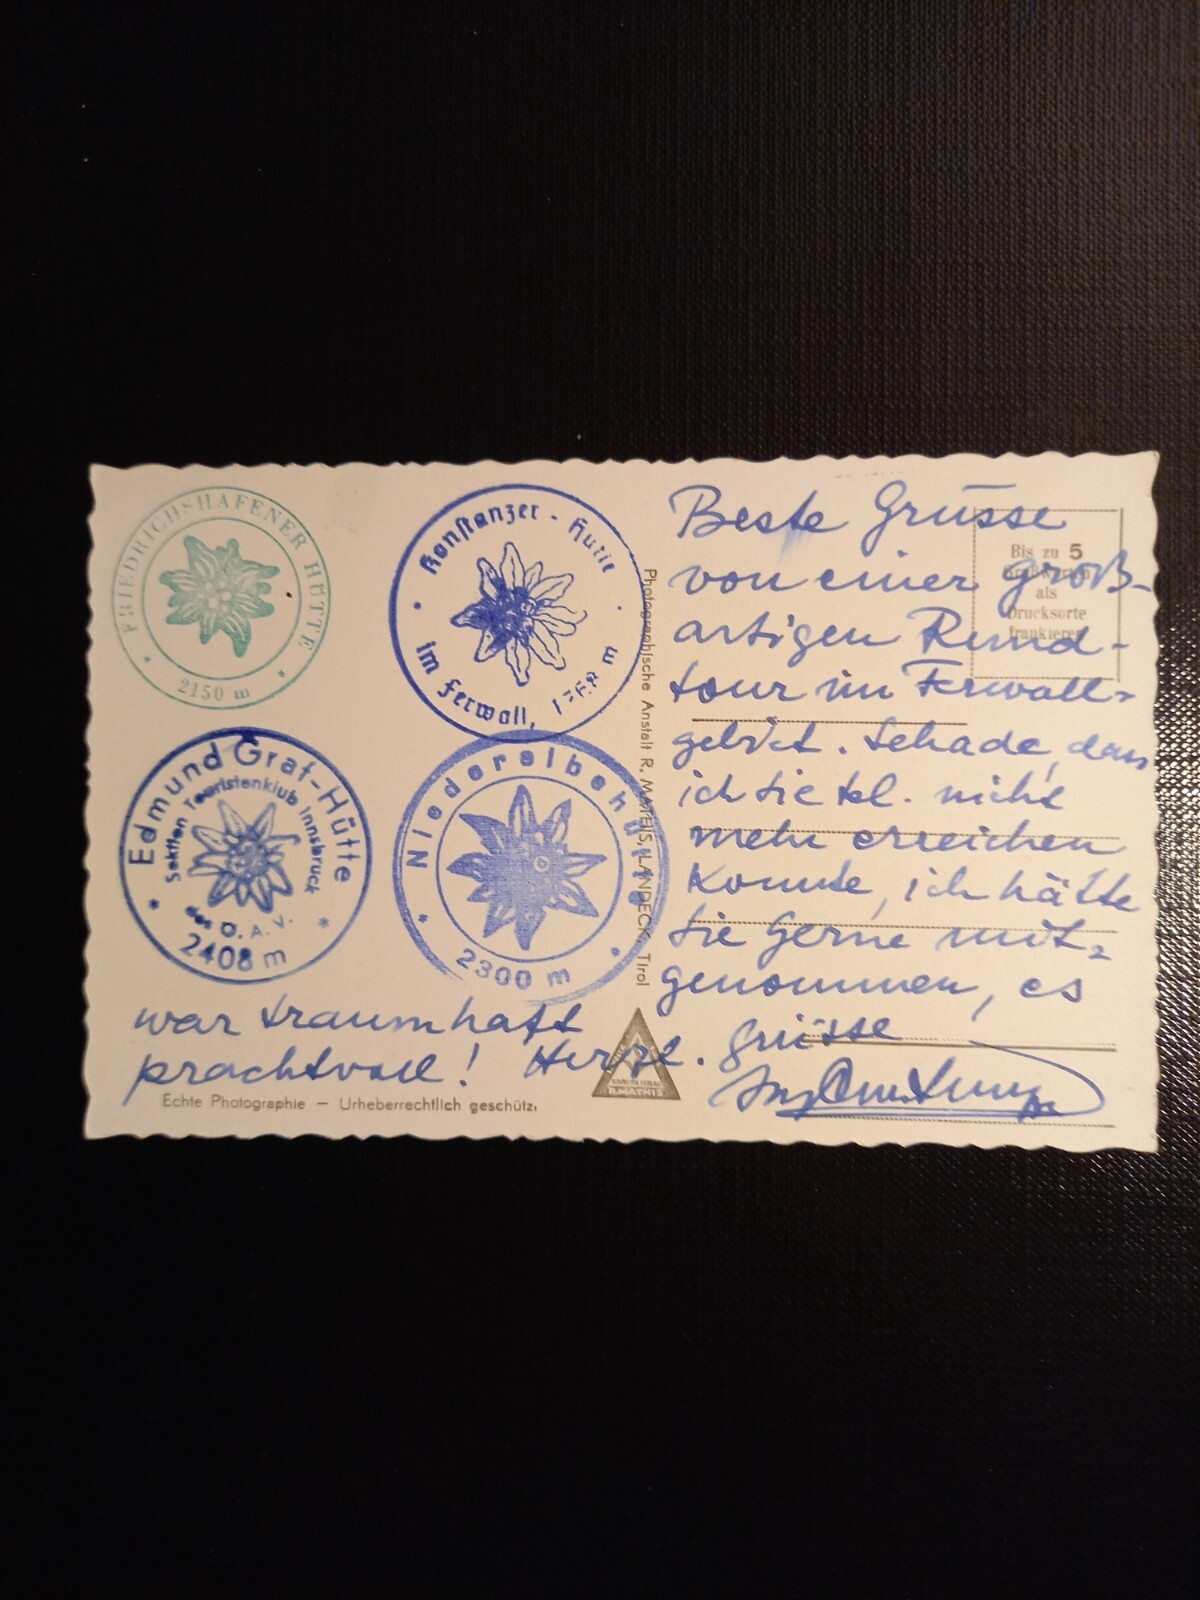 FRIEDRICHSHAFENER HÜTTE
2150 m
Konstanzer - Hütte
im Ferwall, 1768 m
Edmund Graf-Hütte
Sektion Touristenklub Innsbruck
des Ö. A. V.
2408 m
Niederelbehütte
2300 m
Photographische Anstalt R. MATHIS, LANDECK Tirol
Bis zu 5
Grußworten
als
Drucksorte
frankieren
Beste Grüsse
von einer groß-
artigen Rund-
tour im Ferwall-
gebiet. Schade, dass
ich sie tel. nicht
mehr erreichen
konnte, ich hätte
sie gerne mit-
genommen, es
war traumhaft
prachtvoll! Herzl. Grüsse
R. MATHIS
Echte Photographie — Urheberrechtlich geschützt